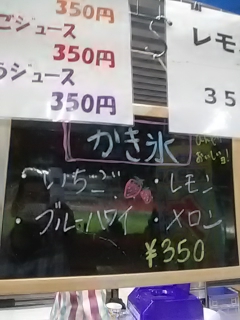 ごジュース 350円
350円
うジュース
350円
レモ
35
かき氷
おいしい
・いちご ・レモン
・ブルーハワイ ・メロン
¥350